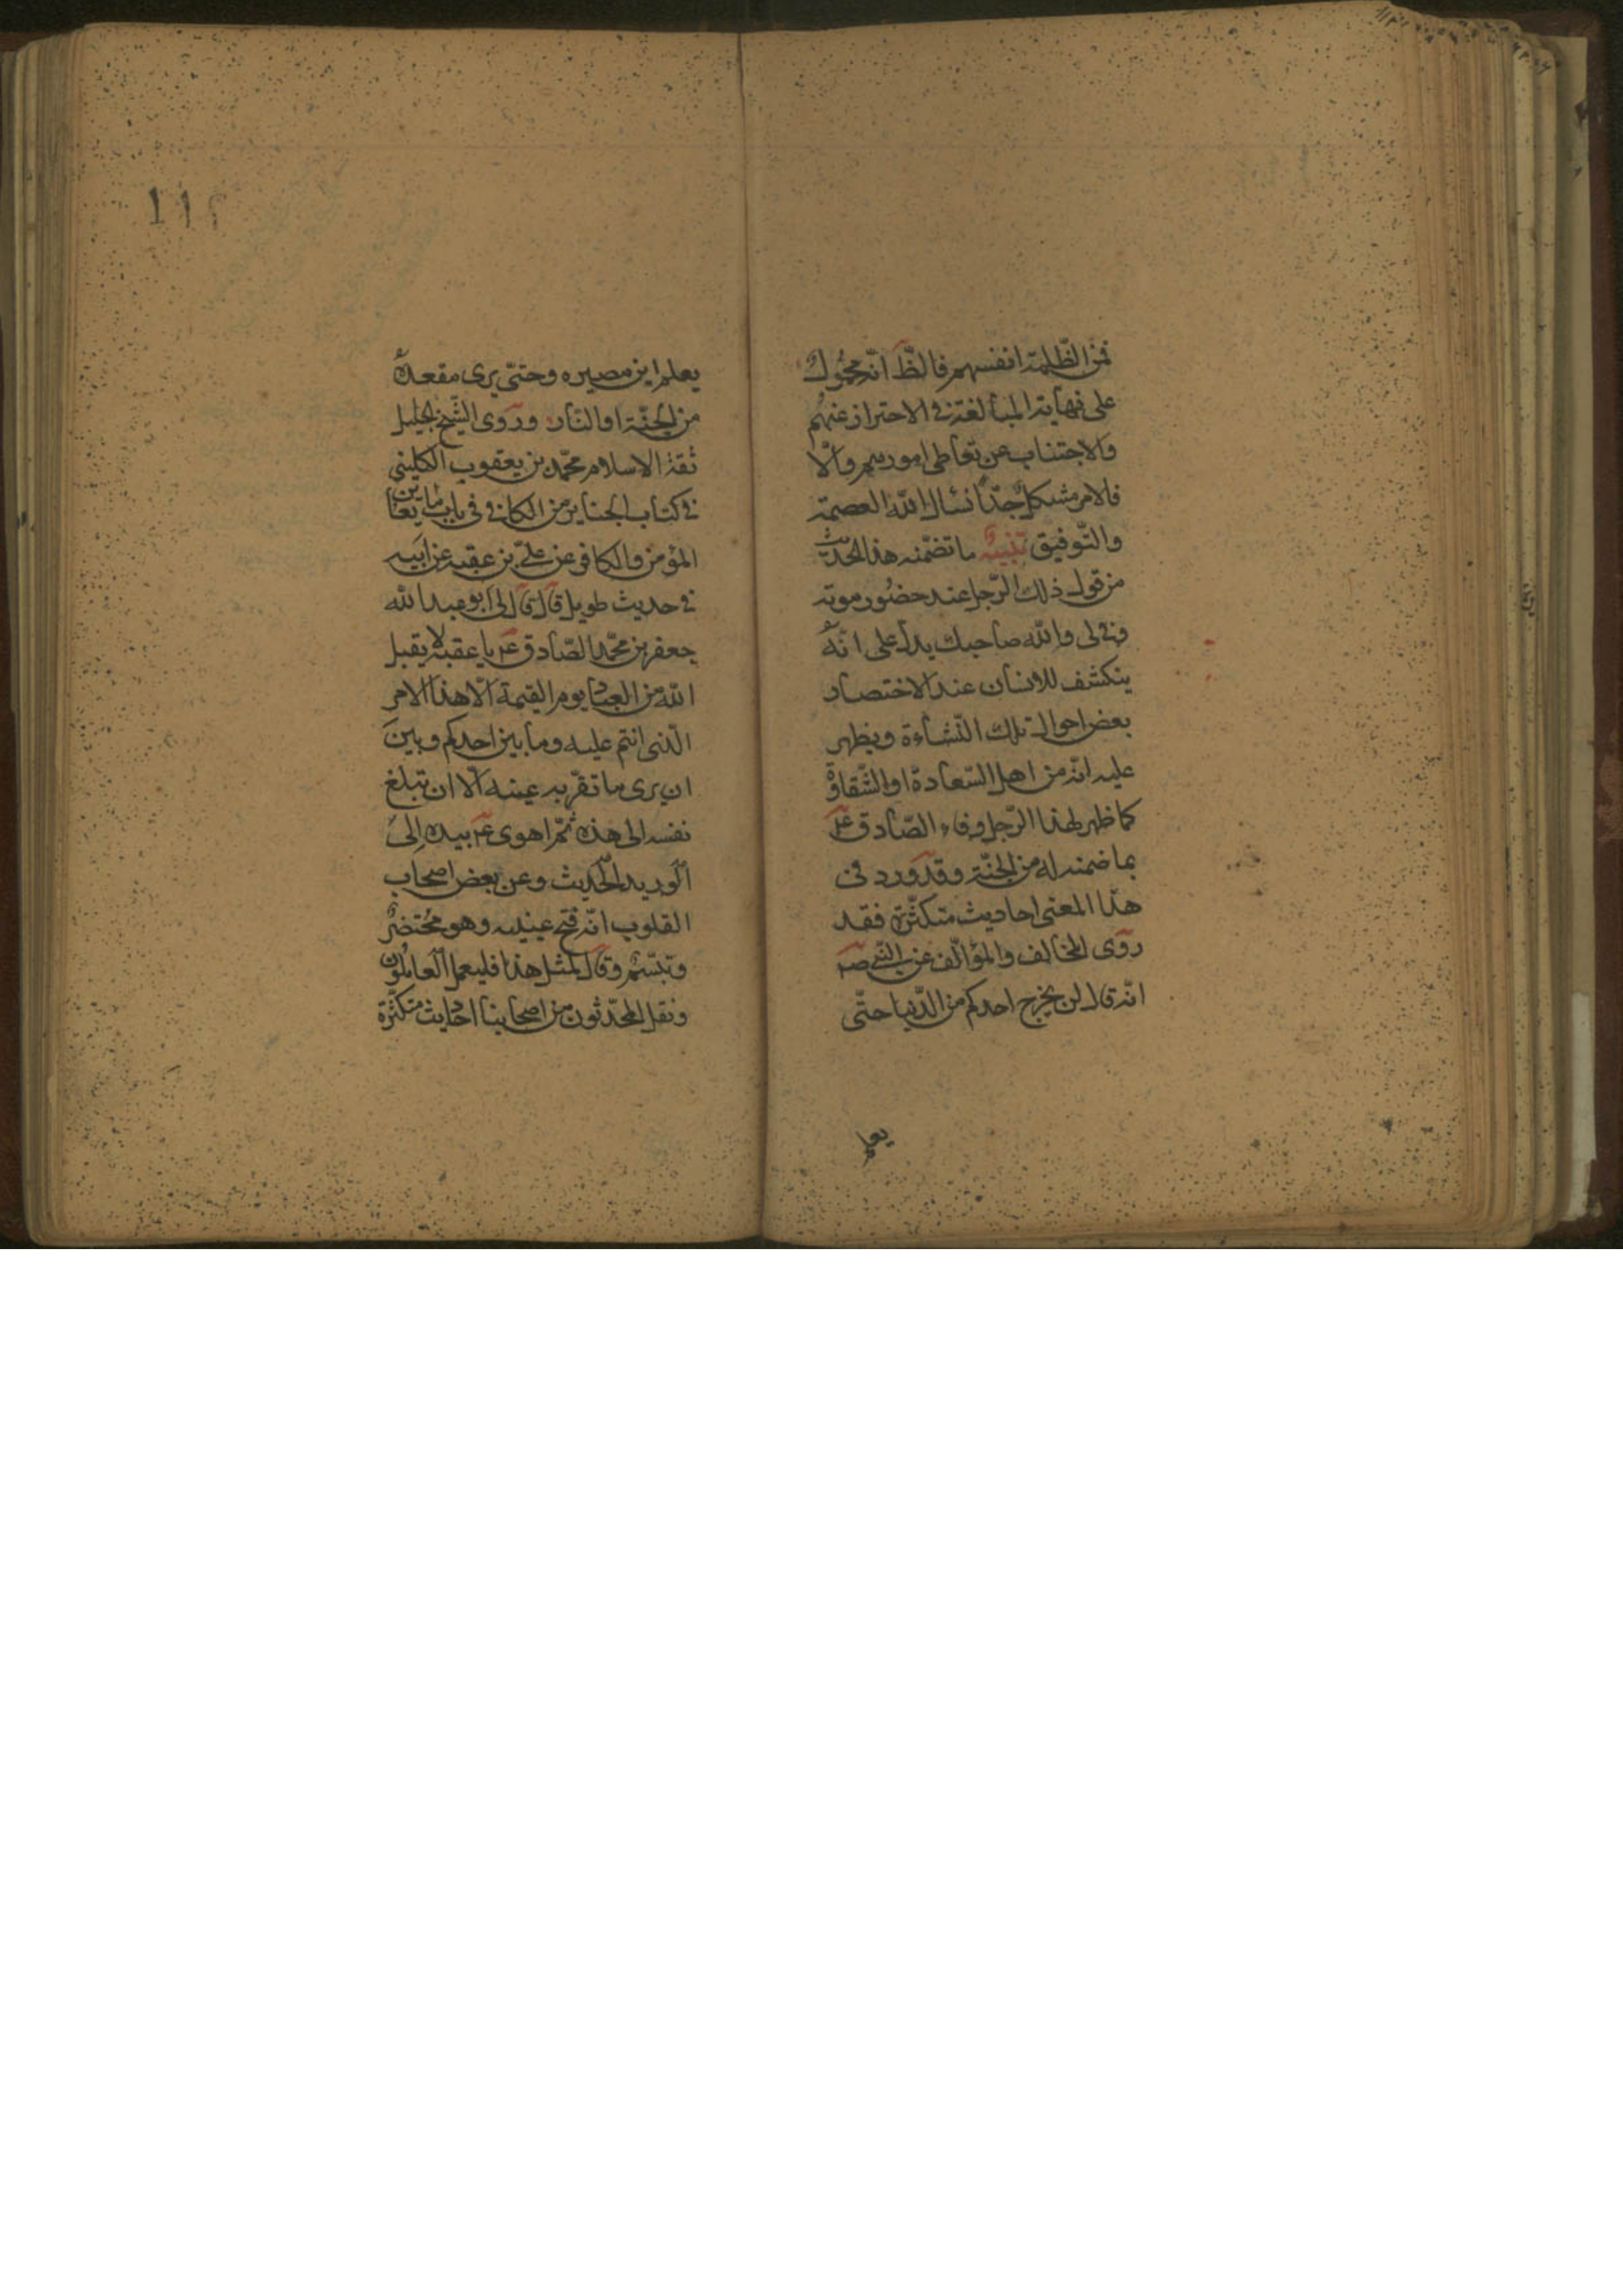 فمن الظلمة انفسهم فالظ انّه محمول
على نهاية المبالغة فى الاحتراز عنهم
والاجتناب عن تعاطى امورهم والّا
فالامر مشكل جدّا نسال الله العصمة
والتّوفيق تنبيه ما تضمّنه هذا الحديث
من قول ذلك الرّجل عند حضور موته
وفى لى والله صاحبك يدل على انّه
ينكشف للانسان عند الاختصار
بعض احوال تلك النّشاءة ويظهر
عليه انّه من اهل السّعادة او الشّقاوة
كما ظهر لهذا الرّجل وفاء الصّادق ع
بما ضمنه له من الجنّة وقد ورد فى
هذا المعنى احاديث متكثّرة فقد
روى المخالف والمؤالف عن النّبي ص
انّه قال لن يخرج احدكم من الدّنيا حتّى
يعلم
١١٢
يعلم اين مصيره وحتّى يرى مقعده
من الجنّة او النّار وروى الشّيخ الجليل
ثقة الاسلام محمّد بن يعقوب الكلينى
فى كتاب الجنايز من الكافى فى باب ما يعاين
المؤمن والكافر عن علىّ بن عقبه عن ابيه
فى حديث طويل قال قال لى ابو عبد الله
جعفر بن محمّد الصّادق ع يا عقبه لا يقبل
الله من العباد يوم القيمة الّا هذا الامر
الّذى انتم عليه وما بين احدكم وبين
ان يرى ما تقرّ به عينه الّا ان تبلغ
نفسه الى هذه ثمّ اهوى ع بيده الى
الوريد الحديث وعن بعض اصحاب
القلوب انّه فتح عينيه وهو محتضر
وتبسّم وقال لمثل هذا فليعمل العاملون
ونقل المحدّثون من اصحابنا احاديث متكثّرة